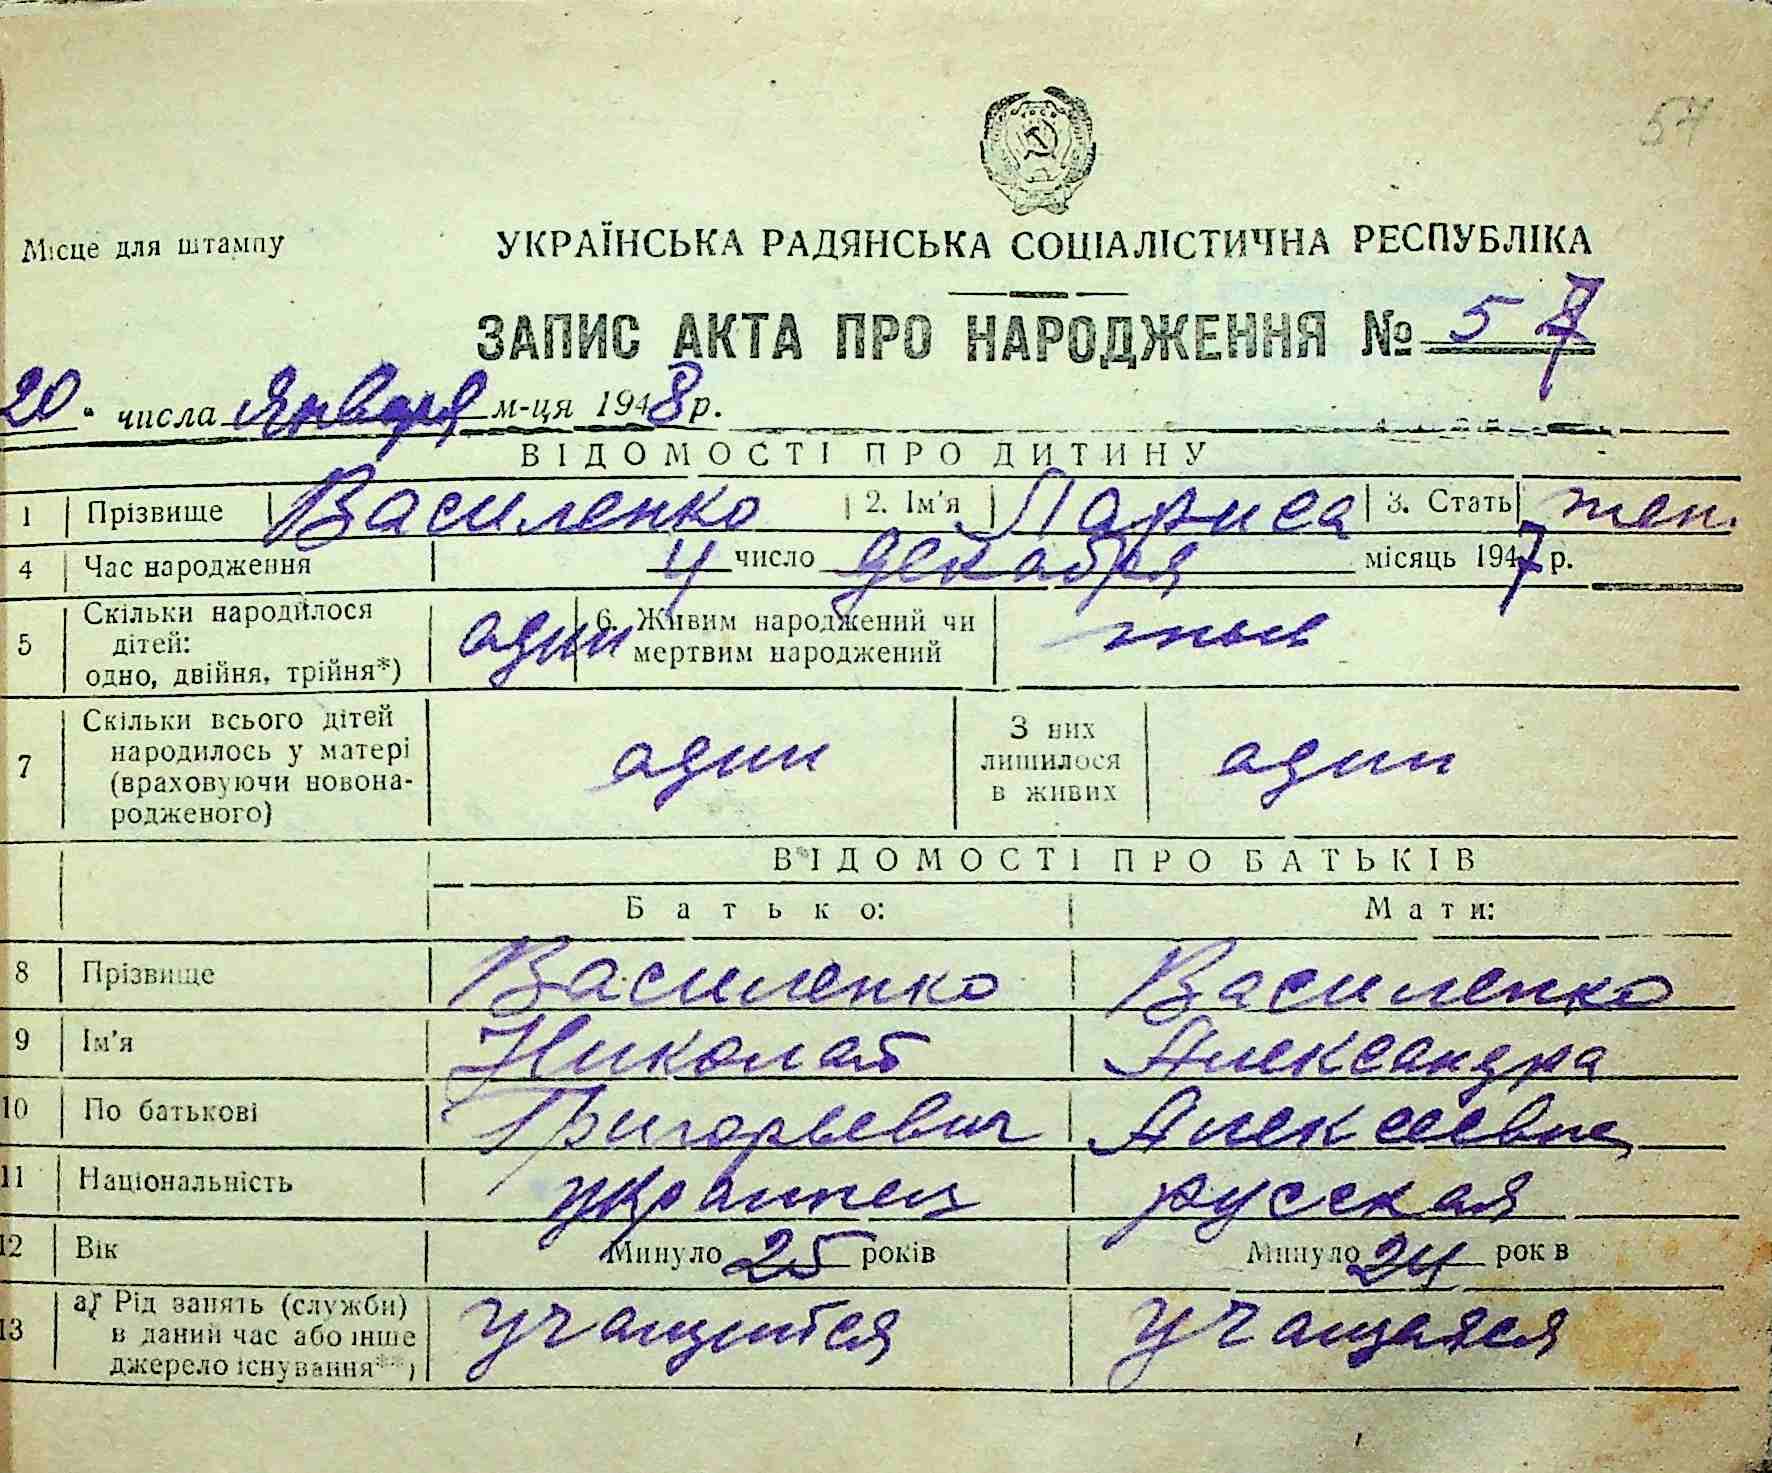 57
Місце для штампу
УКРАЇНСЬКА РАДЯНСЬКА СОЦІАЛІСТИЧНА РЕСПУБЛІКА
ЗАПИС АКТА ПРО НАРОДЖЕННЯ № 57
20 числа Января м-ця 1948 р.
ВІДОМОСТІ ПРО ДИТИНУ
1 Прізвище Василенко 2. Ім'я Лариса 3. Стать жен.
4 Час народження 4 число декабря місяць 1947 р.
5 Скільки народилося дітей: одно, двійня, трійня*) один 6. Живим народжений чи мертвим народжений
7 Скільки всього дітей народилось у матері (враховуючи новонародженого) один З них лишилося в живих один
ВІДОМОСТІ ПРО БАТЬКІВ
Батько: Мати:
8 Прізвище Василенко Василенко
9 Ім'я Николай Александра
10 По батькові Григорьевич Алексеевна
11 Національність украинец русская
12 Вік Минуло 25 років Минуло 24 рок в
13 а) Рід занять (служби) в даний час або інше джерело існування**) учащийся учащаяся